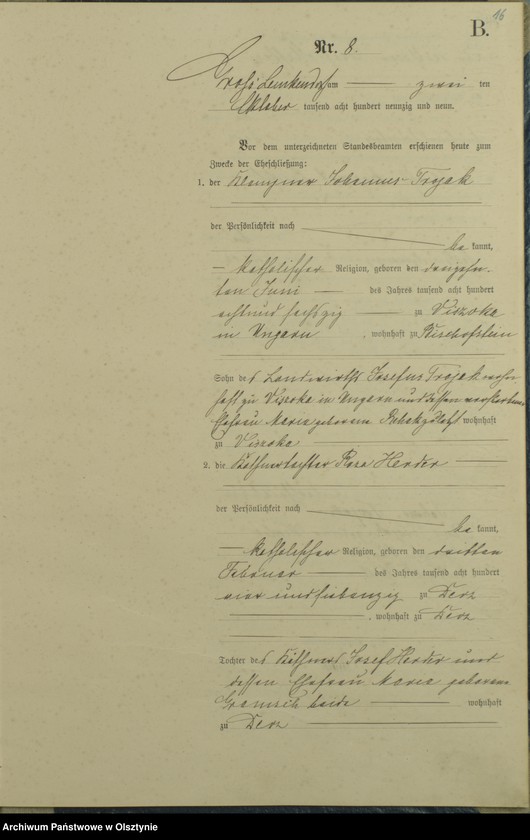 16
B.
Nr. 8.
Groß Lemkendorf am zwei ten
Oktober tausend acht hundert neunzig und neun.
Vor dem unterzeichneten Standesbeamten erschienen heute zum
Zwecke der Eheschließung:
1. der Klempner Johannes Trojak
der Persönlichkeit nach
be kannt,
katholischer Religion, geboren den dreizehn-
ten Juni des Jahres tausend acht hundert
achtund sechszig zu Viszoka
in Ungarn, wohnhaft zu Bischofstein
Sohn des Landwirths Josefus Trojak wohn-
haft zu Viszoka in Ungarn und dessen verstorbenen
Ehefrau Maria geborene wohnhaft
zu Viszoka
2. die Käthnertochter Rosa Herder
der Persönlichkeit nach
be kannt,
katholischer Religion, geboren den dritten
Februar des Jahres tausend acht hundert
vier und siebenzig zu Derz
, wohnhaft zu Derz
Tochter des Käthners Josef Herder und
dessen Ehefrau Maria geborene
Gramsch beide wohnhaft
zu Derz
Archiwum Państwowe w Olsztynie